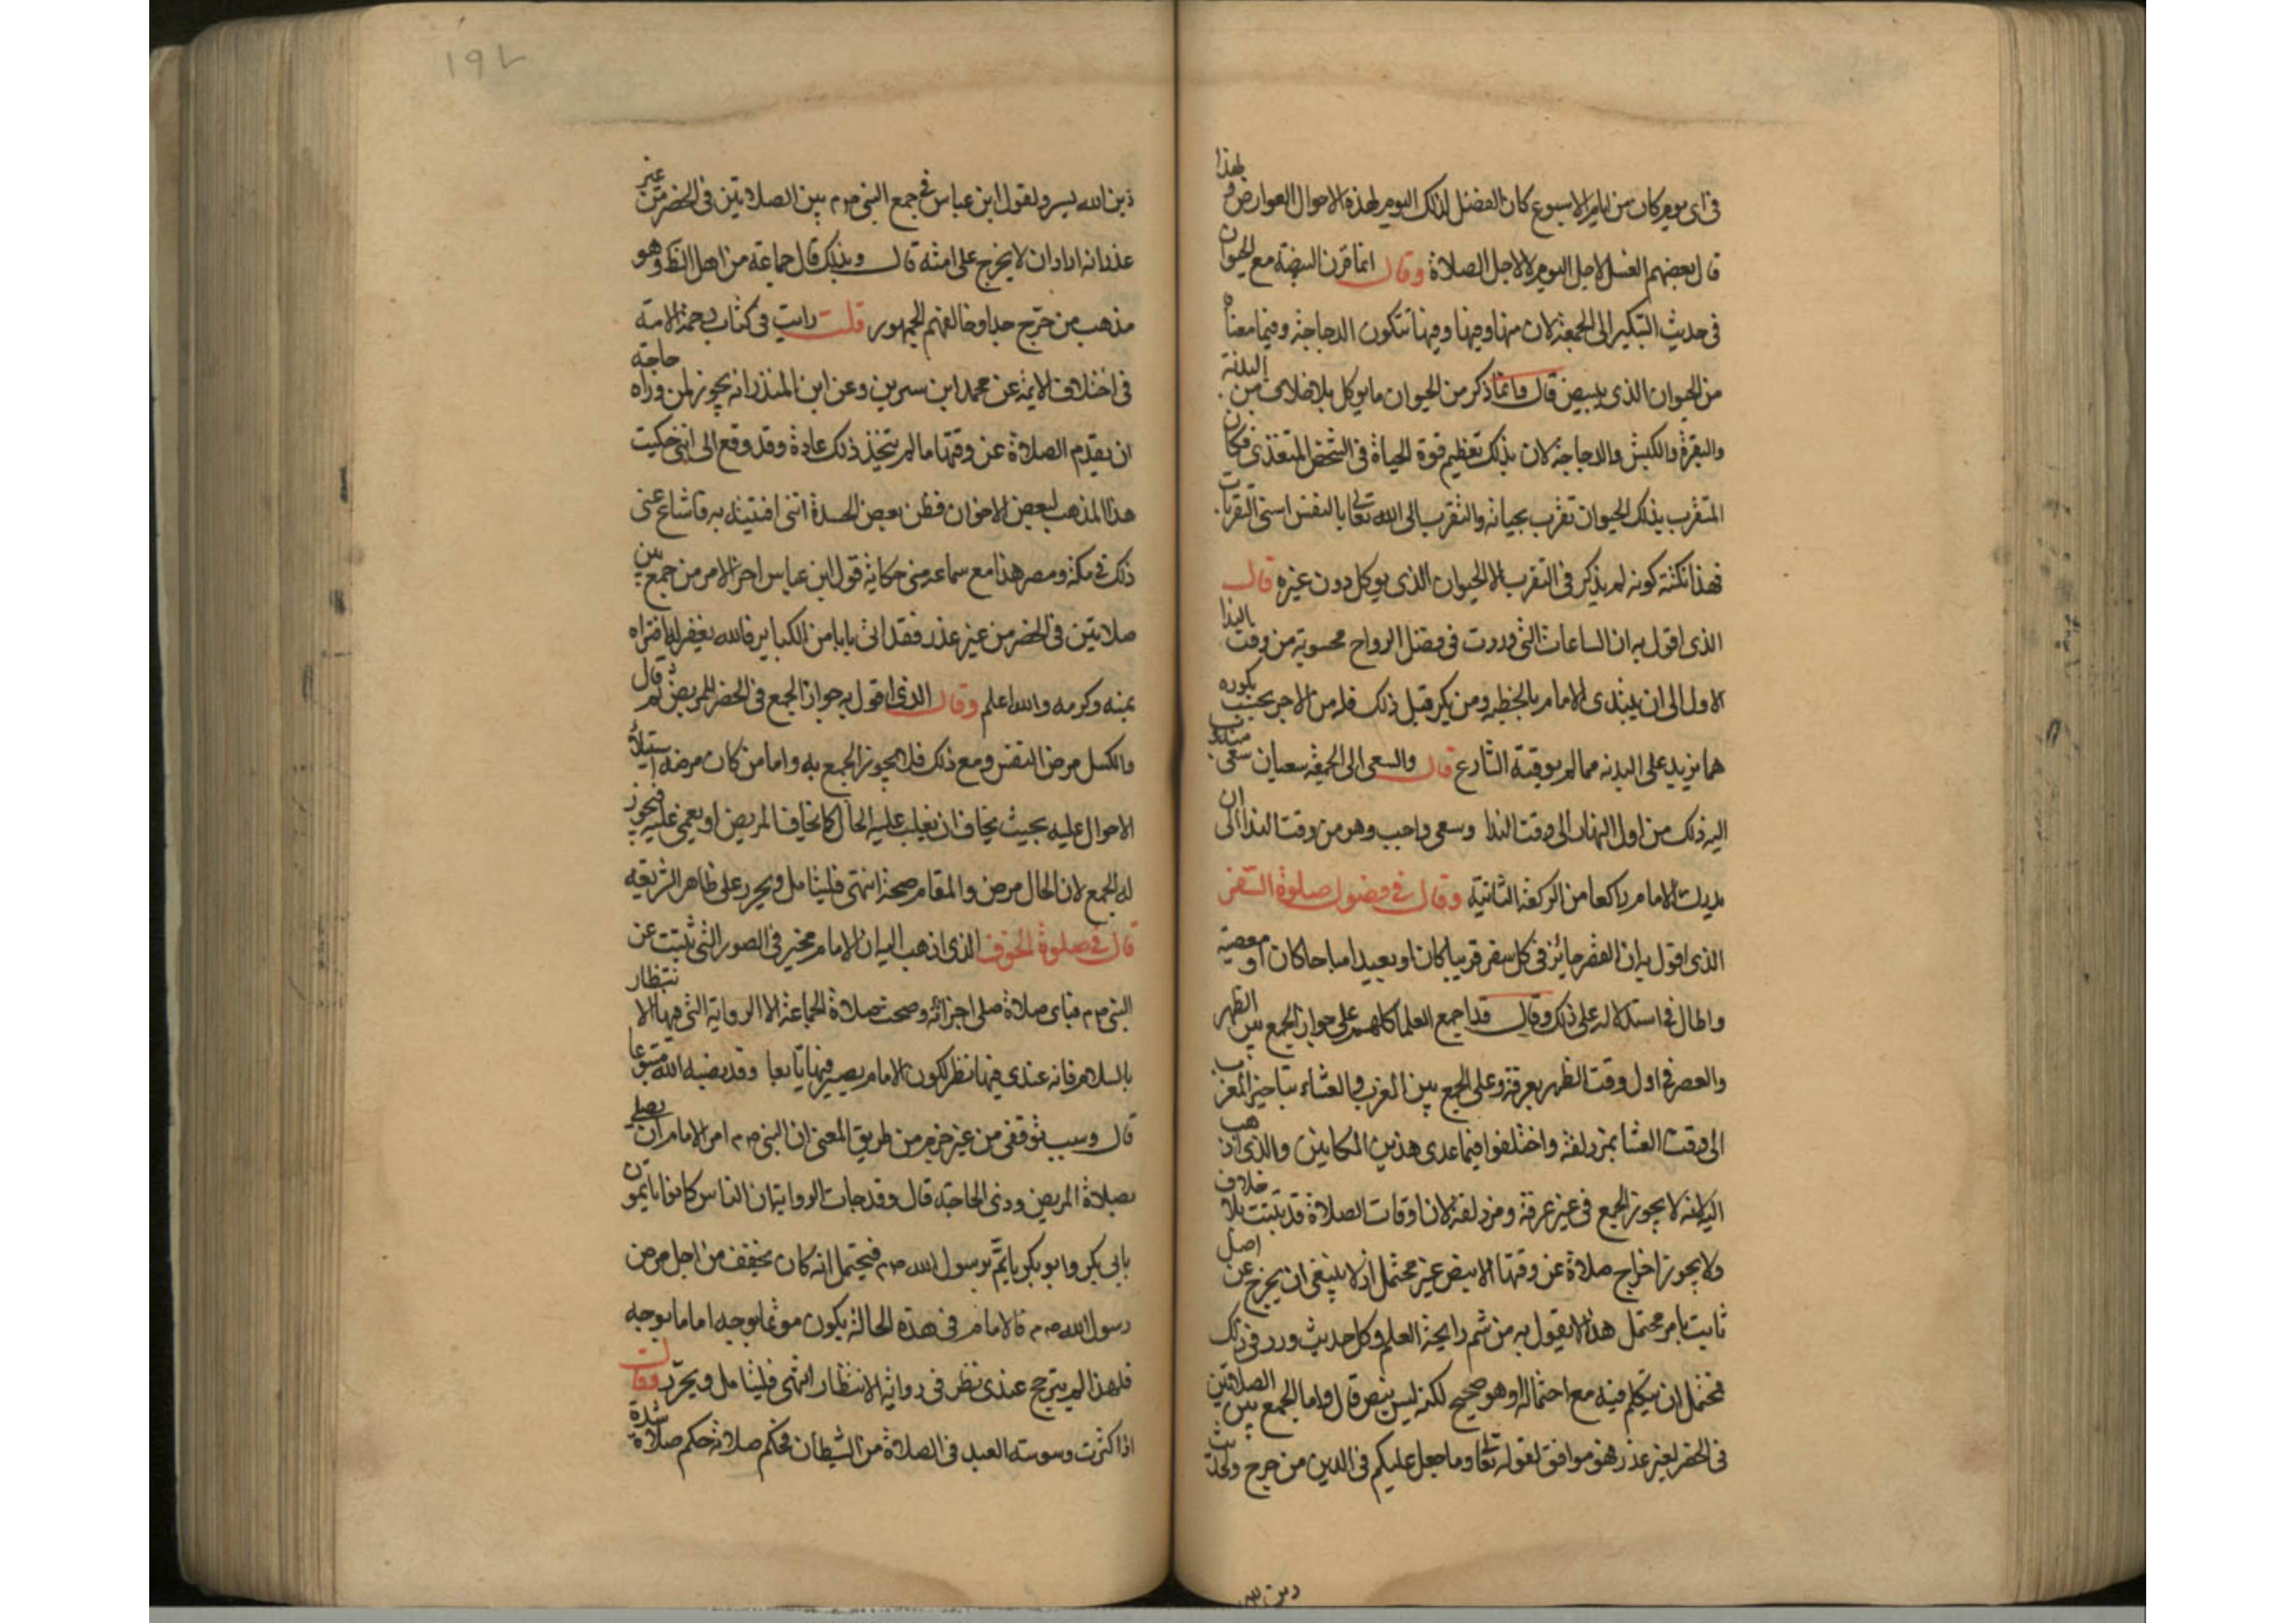 في اى يوم كان من ايام الاسبوع كان الفضل لذلك اليوم لهذه الاحوال العوارض و لهذا
قال بعضهم الغسل لاجل اليوم لا لاجل الصلاة وقال انما قرن البيضة مع الحيوان
في حديث التبكير الى الجمعة لان منها وفيها وفيها تتكون الدجاجة وفيما معناه
من الحيوان الذي يبيض قال وانما ذكر من الحيوان ما يوكل بلا خلاف من البدنة
والبقرة والكبش والدجاجة لان بذلك تعظيم قوة الحياة في الشخص المتغذى فكان
المتقرب بذلك الحيوان تقرب بحياته والتقرب الى الله تعالى بالنفس اسنى القربات
فهذا نكتة كونه لم يذكر في التقرب الا الحيوان الذي يوكل دون غيره قال
الذي اقول به ان الساعات التي وردت في فضل الرواح محسوبة من وقت الندا
الاول الى ان يبتدى الامام بالخطبه ومن بكر قبل ذلك فله من الاجر بحسب بكوره
مما يزيد على البدنه مما لم يوقته الشارع قال والسعى الى الجمعة سعيان سعى مندوب
اليه وذلك من اول النهار الى وقت الندا وسعى واجب وهو من وقت الندا الى ان
يدرك الامام راكعا من الركعة الثانية وقال في فصول صلوة السفر
الذي اقول به ان القصر جائز في كل سفر قريبا كان او بعيدا مباحا كان او معصية
واطال في استدلاله على ذلك وقال قد اجمع العلما كلهم على جواز الجمع بين الظهر
والعصر في اول وقت الظهر بعرفة وعلى الجمع بين المغرب والعشاء بتاخير المغرب
الى وقت العشا بمزدلفة واختلفوا فيما عدى هذين المكانين والذي اذهب
اليه انه لا يجوز الجمع في غير عرفة ومزدلفة لان اوقات الصلاة قد ثبتت بلا خلاف
ولا يجوز اخراج صلاة عن وقتها الا بنص غير محتمل اذ لا ينبغي ان يخرج عن اصل
ثابت بامر محتمل هذا لا يقول به من شم رايحة العلم وكل حديث ورد في ذلك
فمحتمل ان يتكلم فيه مع احتماله او هو صحيح لكنه ليس بنص قال واما الجمع بين الصلاتين
في الحضر لغير عذر فهو موافق لقوله تعالى وما جعل عليكم في الدين من حرج ولحديث
دين الله
١٩٢
دين الله يسر ولقول ابن عباس في جمع النبي صم بين الصلاتين في الحضر من غير
عذر انه اراد ان لا يحرج على امته قال وبذلك قال جماعة من اهل النظر وهو
مذهب من حرج جدا وخالفهم الجمهور قلت رايت في كتاب رحمة الامة
في اختلاف الايمة عن محمد ابن سيرين وعن ابن المنذر انه يجوز لمن وراه حاجة
ان يقدم الصلاة عن وقتها ما لم يتخذ ذلك عادة وقد وقع الى انني حكيت
هذا المذهب لبعض الاخوان فظن بعض الحسدة انني افتيته به فاشاع عني
ذلك في مكة ومصر هذا مع سماعه مني حكاية قول ابن عباس اخر الامر من جمع بين
صلاتين في الحضر من غير عذر فقد اتى بابا من الكباير فالله يغفر له ما افتراه
بمنه وكرمه والله اعلم وقال الذي اقول به جواز الجمع في الحضر للمريض ثم قال
والكسل مرض النفس ومع ذلك فلا يجوز الجمع به واما من كان مرضه استيلاء
الاحوال عليه بحيث يخاف ان يغلب عليه الحال كما يخاف المريض او يغمى عليه فيجوز
له الجمع لان الحال مرض والمقام صحة انتهى فليتامل ويحرر على ظاهر الشريعه
قال في صلوة الخوف الذي اذهب اليه ان الامام مخير في الصور التي ثبتت عن
النبي صم فباى صلاة صلى اجزاته وصحت صلاة الجماعة الا الرواية التي فيها الانتظار
بالسلام فانه عندي فيها نظر لكون الامام يصير فيها تابعا وقد نصبه الله متبوعا
قال وسبب توقفي من غير جزم من طريق المعنى ان النبي صم امر الامام ان يصلي
بصلاة المريض وذي الحاجة قال وقد جات الرواية ان الناس كانوا ياتمون
بابي بكر وابو بكر ياتم برسول الله صم فيحتمل انه كان يخفف من اجل مرض
رسول الله صم فالامام في هذه الحالة يكون موتما بوجه اماما بوجه
فلهذا لم يترجح عندي نظر في رواية الانتظار انتهى فليتامل ويحرر وقال
اذا كثرت وسوسة العبد في الصلاة من الشيطان فحكم صلاته حكم صلاة شدة